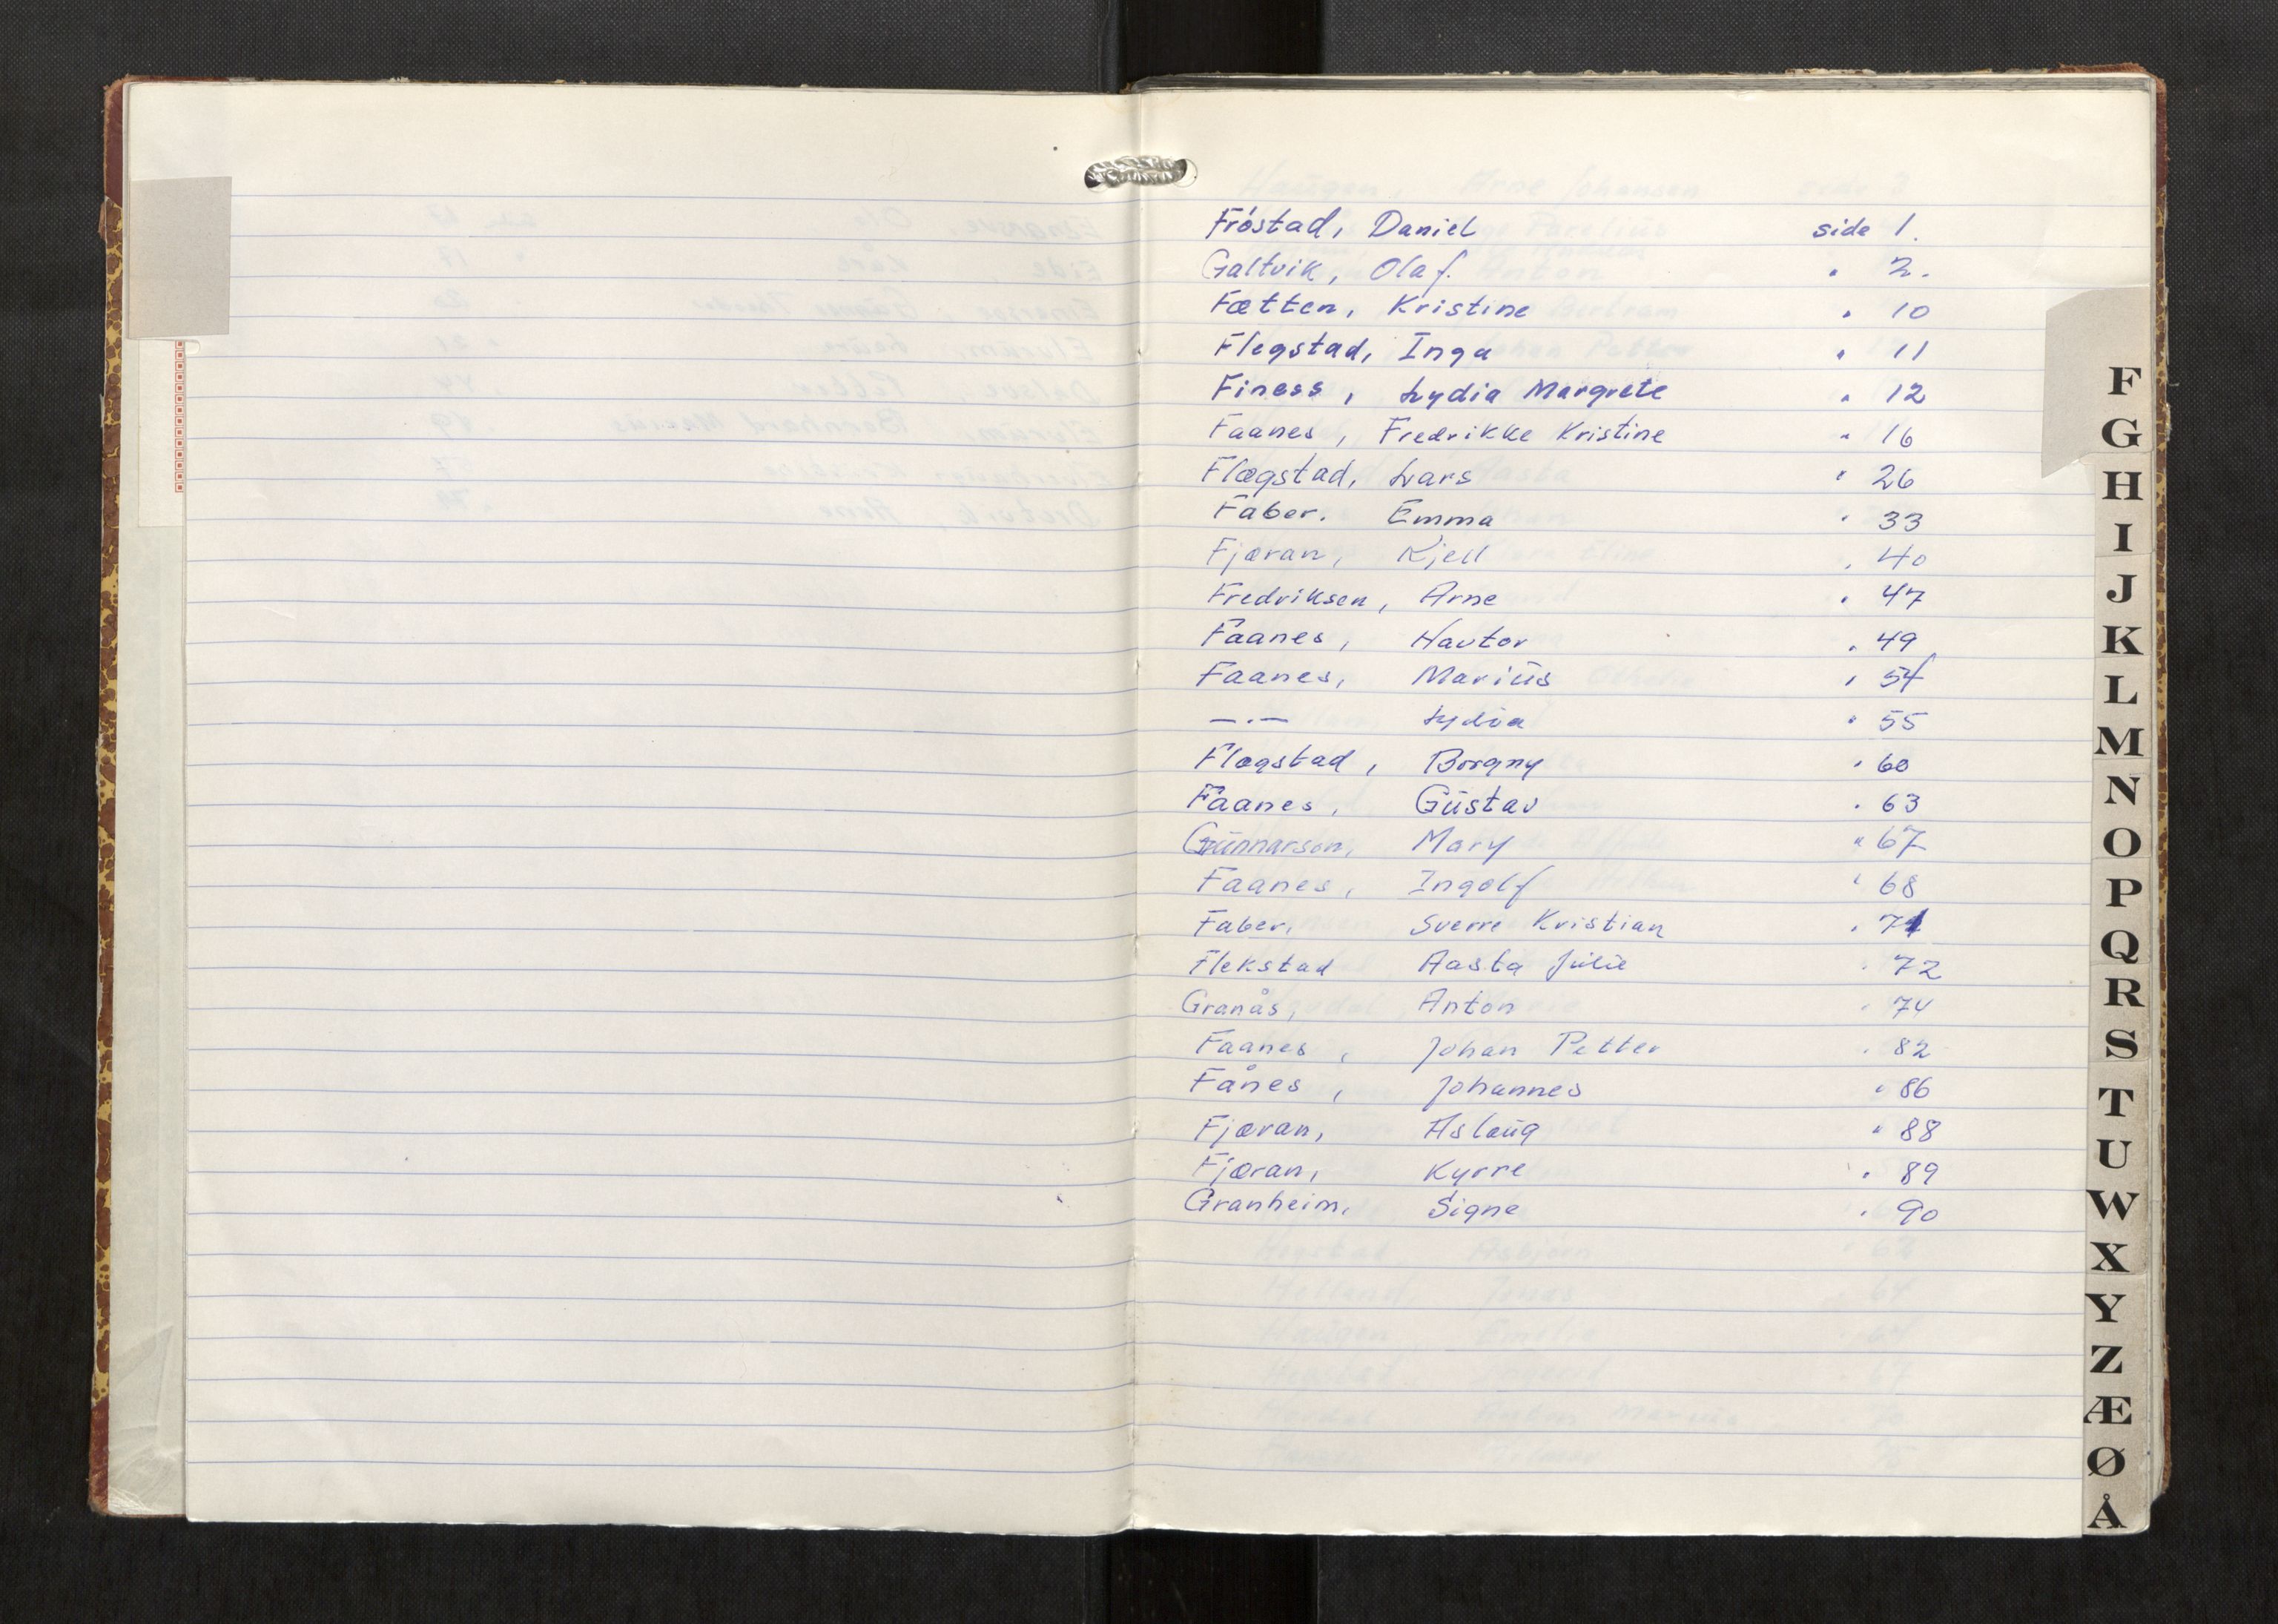 Fröstad, Daniel side 1.
Galtvik, Olaf. " 2.
Fætten, Kristine " 10
Flegstad, Inga " 11
Finess, Lydia Margrete " 12
Faanes, Fredrikke Kristine " 16
Flægstad, Lars " 26
Faber. Emma " 33
Fjæran, Kjell " 40
Fredriksen, Arne " 47
Faanes, Havtor " 49
Faanes, Marius " 54
—.— Lydia " 55
Flægstad, Borgny " 60
Faanes, Gustav " 63
Gunnarson, Mary " 67
Faanes, Ingolf " 68
Faber, Sverre Kristian " 71
Flekstad Aasta Julie " 72
Granås, Anton " 74
Faanes, Johan Petter " 82
Fånes, Johannes " 86
Fjæran, Aslaug " 88
Fjæran, Kyrre " 89
Granheim, Signe " 90
F
G
H
I
J
K
L
M
N
O
P
Q
R
S
T
U
W
X
Y
Z
Æ
Ø
Å